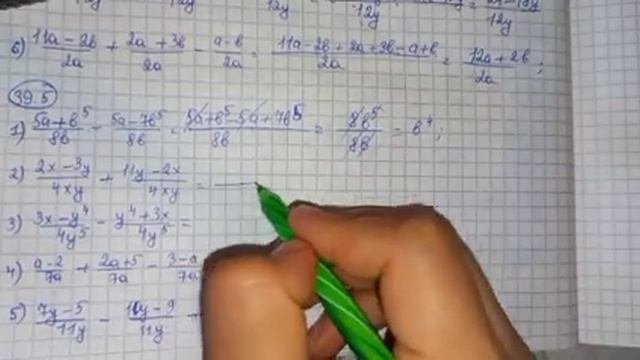 12y 12y 12y
6) (11a - 2b)/2a + (2a + 3b)/2a - (a - b)/2a = (11a - 2b + 2a + 3b - a + b)/2a = (12a + 2b)/2a ;
39.5
1) (5a + b⁵)/8b - (5a - 7b⁵)/8b = (5a + b⁵ - 5a + 7b⁵)/8b = 8b⁵/8b = b⁴;
2) (2x - 3y)/4xy + (11y - 2x)/4xy =
3) (3x - y⁴)/4y⁵ - (y⁴ + 3x)/4y⁵ =
4) (a - 2)/7a + (2a + 5)/7a - (3 - a)/7a
5) (7y - 5)/11y - (10y - 9)/11y -